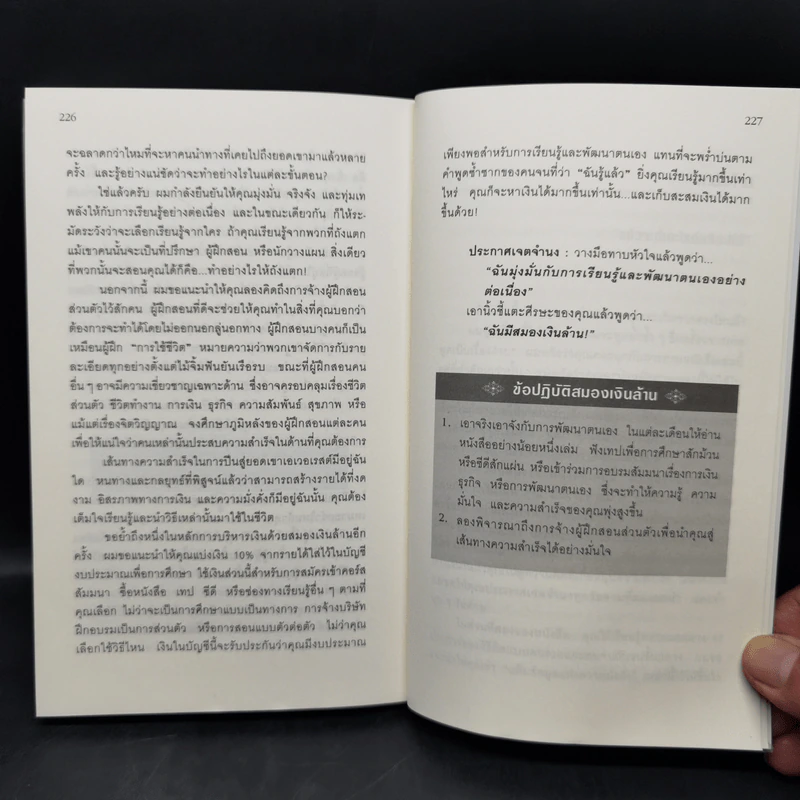 226
จะฉลาดกว่าไหมที่จะหาคนนำทางที่เคยไปถึงยอดเขามาแล้วหลาย
ครั้ง และรู้อย่างแน่ชัดว่าจะทำอย่างไรในแต่ละขั้นตอน?
ใช่แล้วครับ ผมกำลังยืนยันให้คุณมุ่งมั่น จริงจัง และทุ่มเท
พลังให้กับการเรียนรู้อย่างต่อเนื่อง และในขณะเดียวกัน ก็ให้ระ-
มัดระวังว่าจะเลือกเรียนรู้จากใคร ถ้าคุณเรียนรู้จากพวกที่ถังแตก
แม้เขาคนนั้นจะเป็นที่ปรึกษา ผู้ฝึกสอน หรือนักวางแผน สิ่งเดียว
ที่พวกนั้นจะสอนคุณได้ก็คือ...ทำอย่างไรให้ถังแตก!
นอกจากนี้ ผมขอแนะนำให้คุณลองคิดถึงการจ้างผู้ฝึกสอน
ส่วนตัวไว้สักคน ผู้ฝึกสอนที่ดีจะช่วยให้คุณทำในสิ่งที่คุณบอกว่า
ต้องการจะทำได้โดยไม่ออกนอกลู่นอกทาง ผู้ฝึกสอนบางคนก็เป็น
เหมือนผู้ฝึก “การใช้ชีวิต” หมายความว่าพวกเขาจัดการกับราย
ละเอียดทุกอย่างตั้งแต่ไม้จิ้มฟันยันเรือรบ ขณะที่ผู้ฝึกสอนคน
อื่น ๆ อาจมีความเชี่ยวชาญเฉพาะด้าน ซึ่งอาจครอบคลุมเรื่องชีวิต
ส่วนตัว ชีวิตทำงาน การเงิน ธุรกิจ ความสัมพันธ์ สุขภาพ หรือ
แม้แต่เรื่องจิตวิญญาณ จงศึกษาภูมิหลังของผู้ฝึกสอนแต่ละคน
เพื่อให้แน่ใจว่าคนเหล่านั้นประสบความสำเร็จในด้านที่คุณต้องการ
เส้นทางความสำเร็จในการปีนสู่ยอดเขาเอเวอเรสต์มีอยู่ฉัน
ใด หนทางและกลยุทธ์ที่พิสูจน์แล้วว่าสามารถสร้างรายได้ที่งด
งาม อิสรภาพทางการเงิน และความมั่งคั่งก็มีอยู่ฉันนั้น คุณต้อง
เต็มใจเรียนรู้และนำวิธีเหล่านั้นมาใช้ในชีวิต
ขอย้ำถึงหนึ่งในหลักการบริหารเงินด้วยสมองเงินล้านอีก
ครั้ง ผมขอแนะนำให้คุณแบ่งเงิน 10% จากรายได้ใส่ไว้ในบัญชี
งบประมาณเพื่อการศึกษา ใช้เงินส่วนนี้สำหรับการสมัครเข้าคอร์ส
สัมมนา ซื้อหนังสือ เทป ซีดี หรือช่องทางเรียนรู้อื่น ๆ ตามที่
คุณเลือก ไม่ว่าจะเป็นการศึกษาแบบเป็นทางการ การจ้างบริษัท
ฝึกอบรมเป็นการส่วนตัว หรือการสอนแบบตัวต่อตัว ไม่ว่าคุณ
เลือกใช้วิธีไหน เงินในบัญชีนี้จะรับประกันว่าคุณมีงบประมาณ
227
เพียงพอสำหรับการเรียนรู้และพัฒนาตนเอง แทนที่จะพร่ำบ่นตาม
คำพูดซ้ำซากของคนจนที่ว่า “ฉันรู้แล้ว” ยิ่งคุณเรียนรู้มากขึ้นเท่า
ไหร่ คุณก็จะหาเงินได้มากขึ้นเท่านั้น...และเก็บสะสมเงินได้มาก
ขึ้นด้วย!
ประกาศเจตจำนง : วางมือทาบหัวใจแล้วพูดว่า...
“ฉันมุ่งมั่นกับการเรียนรู้และพัฒนาตนเองอย่าง
ต่อเนื่อง”
เอานิ้วชี้แตะศีรษะของคุณแล้วพูดว่า...
“ฉันมีสมองเงินล้าน!”
ข้อปฏิบัติสมองเงินล้าน
1. เอาจริงเอาจังกับการพัฒนาตนเอง ในแต่ละเดือนให้อ่าน
หนังสืออย่างน้อยหนึ่งเล่ม ฟังเทปเพื่อการศึกษาสักม้วน
หรือซีดีสักแผ่น หรือเข้าร่วมการอบรมสัมมนาเรื่องการเงิน
ธุรกิจ หรือการพัฒนาตนเอง ซึ่งจะทำให้ความรู้ ความ
มั่นใจ และความสำเร็จของคุณพุ่งสูงขึ้น
2. ลองพิจารณาถึงการจ้างผู้ฝึกสอนส่วนตัวเพื่อนำคุณสู่
เส้นทางความสำเร็จได้อย่างมั่นใจ